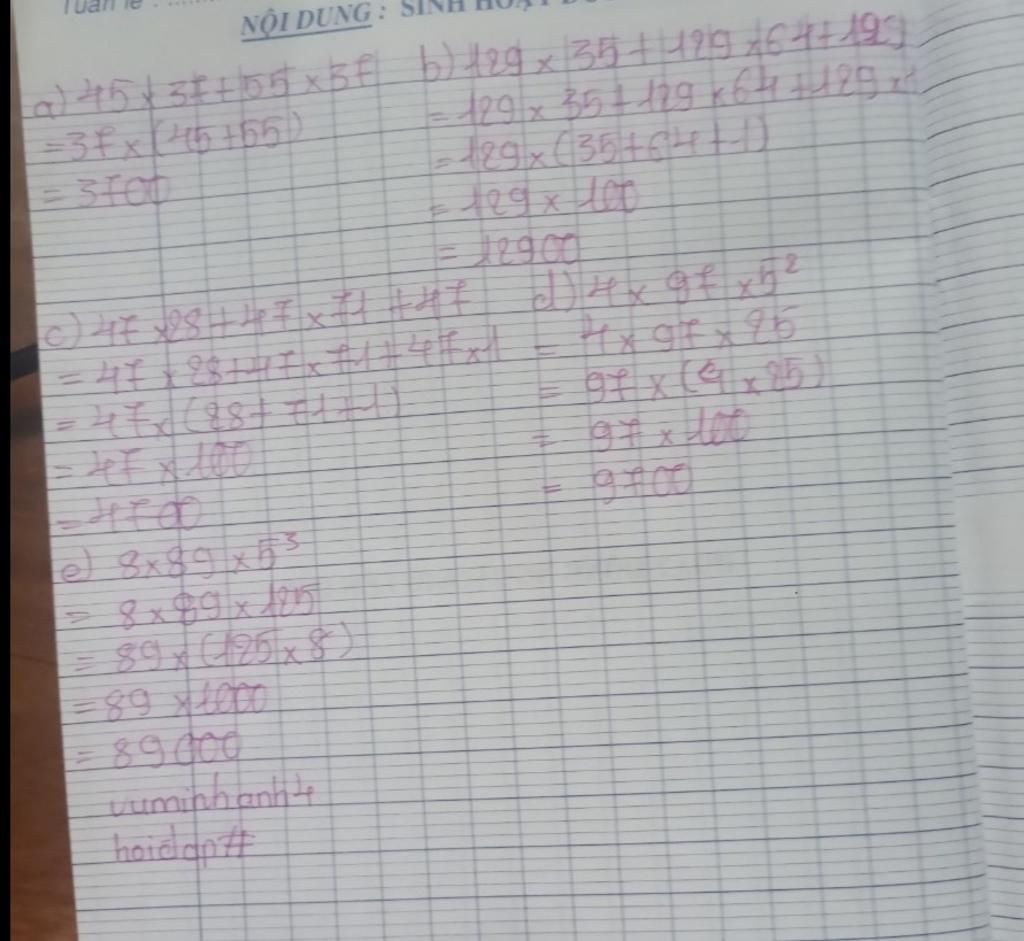 Tuần lễ :
NỘI DUNG :
a) 45 x 37 + 55 x 37
= 37 x (45 + 55)
= 3700
b) 129 x 35 + 129 x 64 + 129
= 129 x 35 + 129 x 64 + 129 x 1
= 129 x (35 + 64 + 1)
= 129 x 100
= 12900
c) 47 x 28 + 47 x 71 + 47
= 47 x 28 + 47 x 71 + 47 x 1
= 47 x (28 + 71 + 1)
= 47 x 100
= 4700
d) 4 x 97 x 5²
= 4 x 97 x 25
= 97 x (4 x 25)
= 97 x 100
= 9700
e) 8 x 89 x 5³
= 8 x 89 x 125
= 89 x (125 x 8)
= 89 x 1000
= 89000
vuminhanh4
hoidap#